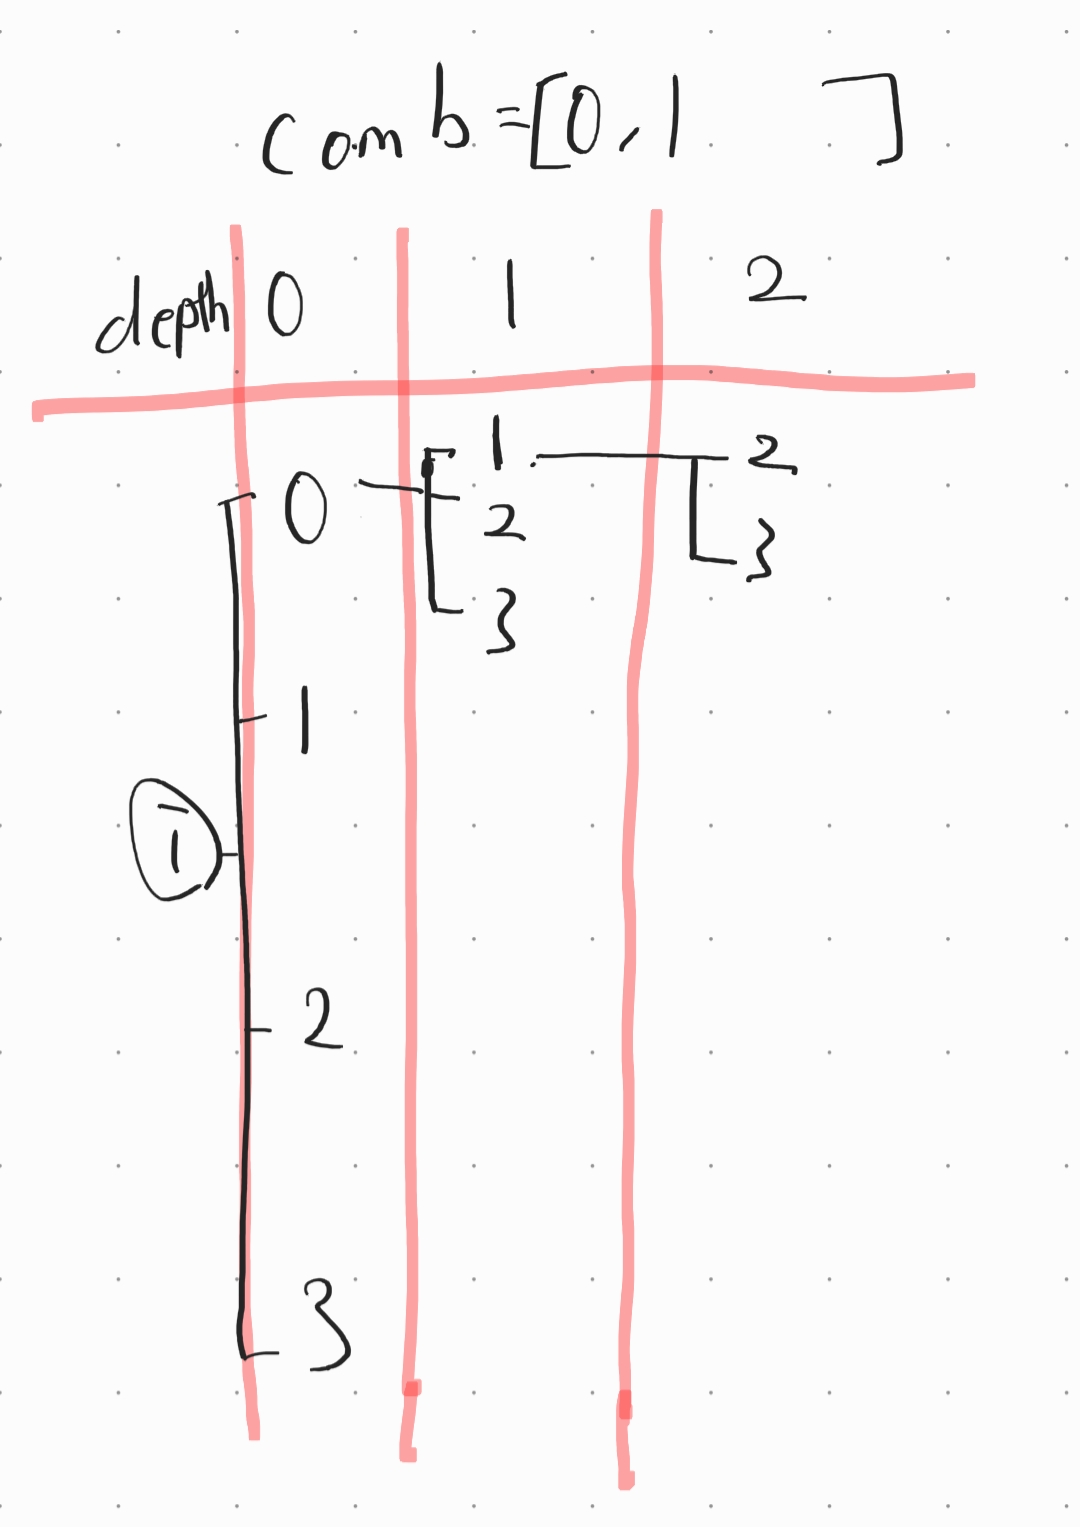 comb=[0,1 ]
depth 0 1 2
0 1 2
2 3
3
1
2
3